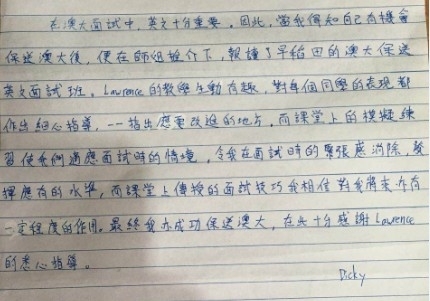 在澳大面試中,英文十分重要。因此,當我得知自己有機會
保送澳大後,便在師姐推介下,報讀了早稻田的澳大保送
英文面試班。Lawrence的教學生動有趣,對每個同學的表現都
作出細心指導,一一指出應要改進的地方。而課堂上的模擬練
習使我們適應面試時的情境,令我在面試時的緊張感消除,發
揮應有的水準,而課堂上傳授的面試技巧我相信對我將來亦有
一定程度的作用。最終我亦成功保送澳大,在此十分感謝Lawrence
的悉心指導。
Dicky